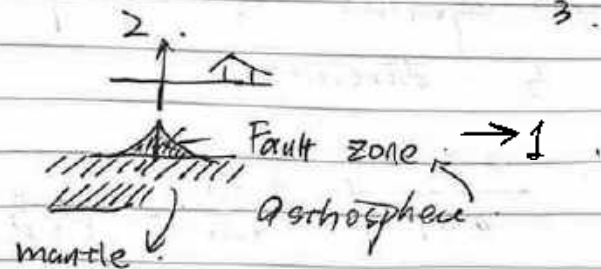 2.
3.
Fault zone → 1
Asthosphere
mantle